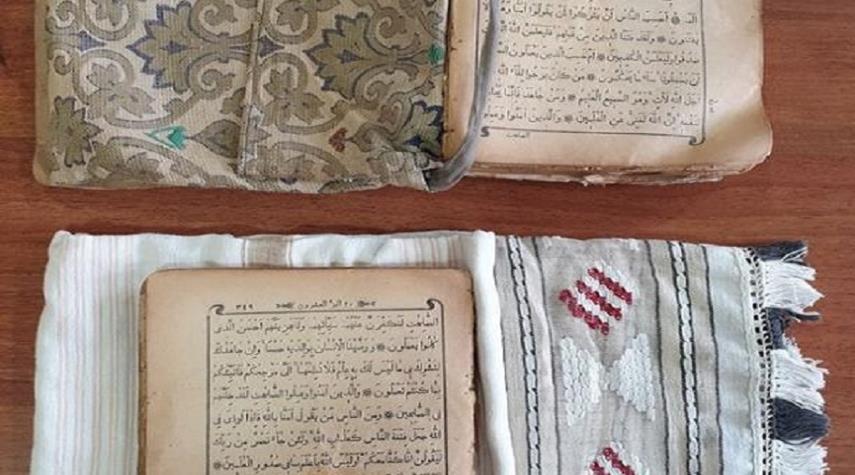 الم ۝ اَحَسِبَ النَّاسُ اَنْ يُتْرَكُوا اَنْ يَقُولُوا اٰمَنَّا
يُفْتَنُونَ ۝ وَلَقَدْ فَتَنَّا الَّذِينَ مِنْ قَبْلِهِمْ فَلَيَعْلَمَنَّ اللّٰهُ
صَدَقُوا وَلَيَعْلَمَنَّ الْكَاذِبِينَ ۝ اَمْ حَسِبَ الَّذِينَ يَعْمَلُونَ
اَنْ يَسْبِقُونَا سَاءَ مَا يَحْكُمُونَ ۝ مَنْ كَانَ يَرْجُوا لِقَاءَ اللّٰهِ
اَجَلَ اللّٰهِ لَاٰتٍ وَهُوَ السَّمِيعُ الْعَلِيمُ ۝ وَمَنْ جَاهَدَ فَاِنَّمَا
لِنَفْسِهِ اِنَّ اللّٰهَ لَغَنِيٌّ عَنِ الْعٰلَمِينَ ۝ وَالَّذِينَ اٰمَنُوا وَعَمِلُوا
الصالحات
٢٠ الجزء العشرون ٣٤٩
الصَّالِحَاتِ لَنُكَفِّرَنَّ عَنْهُمْ سَيِّاٰتِهِمْ وَلَنَجْزِيَنَّهُمْ اَحْسَنَ الَّذِي
كَانُوا يَعْمَلُونَ ۝ وَوَصَّيْنَا الْاِنْسَانَ بِوَالِدَيْهِ حُسْنًا وَاِنْ جَاهَدَاكَ
لِتُشْرِكَ بِي مَا لَيْسَ لَكَ بِهِ عِلْمٌ فَلَا تُطِعْهُمَا اِلَيَّ مَرْجِعُكُمْ فَاُنَبِّئُكُمْ
بِمَا كُنْتُمْ تَعْمَلُونَ ۝ وَالَّذِينَ اٰمَنُوا وَعَمِلُوا الصَّالِحَاتِ لَنُدْخِلَنَّهُمْ
فِي الصَّالِحِينَ ۝ وَمِنَ النَّاسِ مَنْ يَقُولُ اٰمَنَّا بِاللّٰهِ فَاِذَا اُوذِيَ فِي
اللّٰهِ جَعَلَ فِتْنَةَ النَّاسِ كَعَذَابِ اللّٰهِ وَلَئِنْ جَاءَ نَصْرٌ مِنْ رَبِّكَ
لَيَقُولُنَّ اِنَّا كُنَّا مَعَكُمْ اَوَلَيْسَ اللّٰهُ بِاَعْلَمَ بِمَا فِي صُدُورِ الْعَالَمِينَ